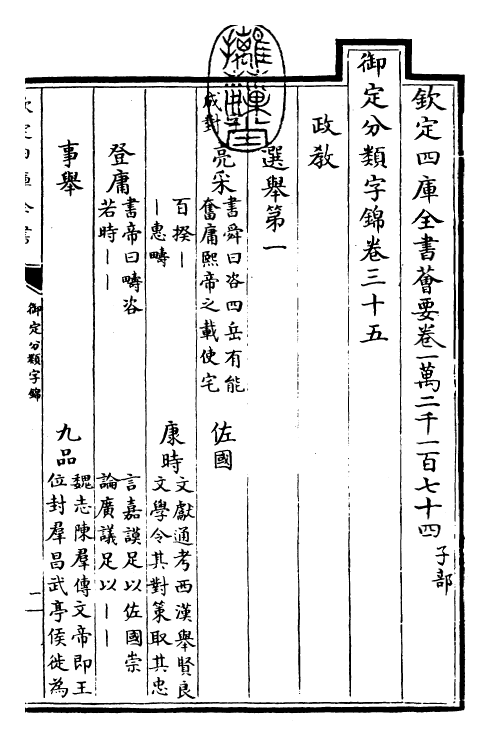 欽定四庫全書薈要卷一萬二千一百七十四 子部
御定分類字錦卷三十五
政敎
選舉第一
成對
亮采
書舜曰咨四岳有能
奮庸熙帝之載使宅
百揆丨
丨惠疇
佐國
康時
文獻通考西漢舉賢良
文學令其對策取其忠
言嘉謨足以佐國崇
論廣議足以丨丨
登庸
書帝曰疇咨
若時丨丨
九品
魏志陳羣傳文帝即王
位封羣昌武亭侯徙為
事舉
欽定四庫全書
御定分類字錦